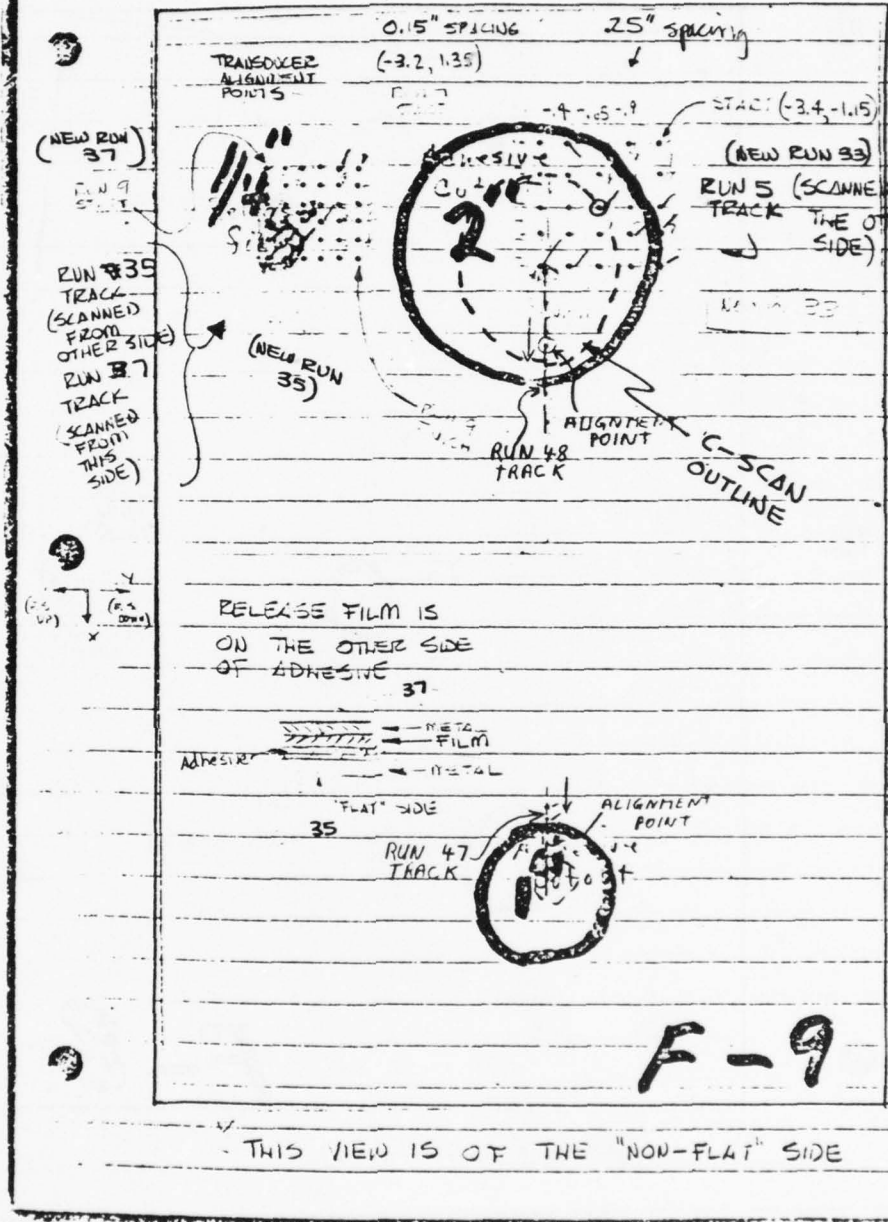 0.15" SPACING
.25" spacing
TRANSDUCER
ALIGNMENT
POINTS
(-3.2, 1.35)
START (-3.4, -1.15)
(NEW RUN
37)
RUN 9
START
(NEW RUN 33)
RUN 5 (SCANNED
TRACK
THE
SIDE)
Adhesive
2"
1"
RUN 35
TRACK
(SCANNED
FROM
OTHER SIDE)
RUN 37
TRACK
(SCANNED
FROM
THIS
SIDE)
(NEW RUN
35)
33
RUN 48
TRACK
ALIGNMENT
POINT
C-SCAN
OUTLINE
Y
X
RELEASE FILM IS
ON THE OTHER SIDE
OF ADHESIVE
37
METAL
FILM
Adhesive
METAL
"FLAT" SIDE
35
RUN 47
TRACK
ALIGNMENT
POINT
1"
F-9
THIS VIEW IS OF THE "NON-FLAT" SIDE